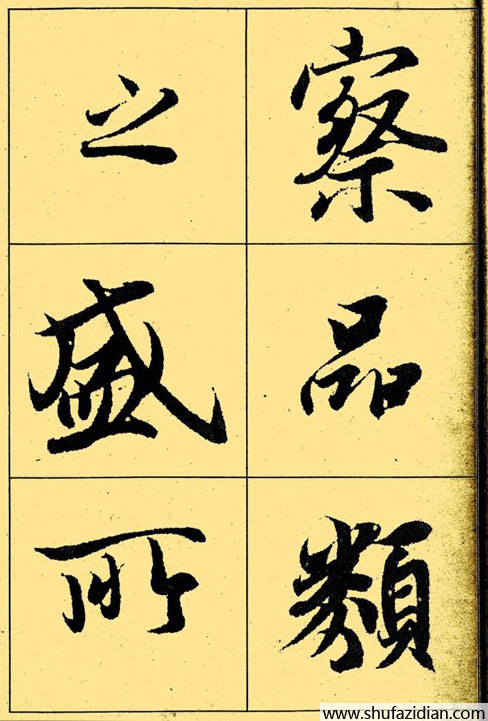 察品類
之盛所
www.shufazidian.com